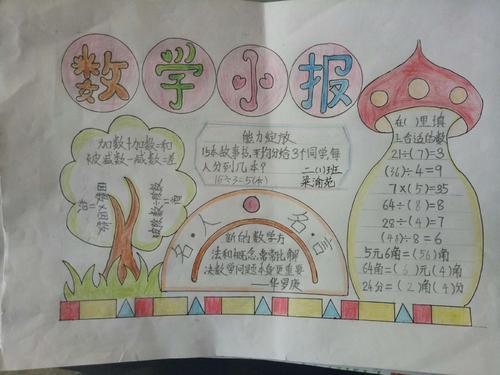 数学小报
加数+加数=和
被减数-减数=差
因数×因数
=积
被除数÷除数
=商
能力绽放
15本故事书,平均分给3个同学,每
人分到几本?
15÷3=5(本)
二(1)班
梁渝苑
名人名言
新的数学方
法和概念,常常比解
决数学问题本身更重要
——华罗庚
在( )里填
上合适的数
21÷(7)=3
(36)÷4=9
7×(5)=35
64÷(8)=8
28÷(4)=7
(48)÷8=6
5元6角=(56)角
64角=(6)元(4)角
24分=(2)角(4)分